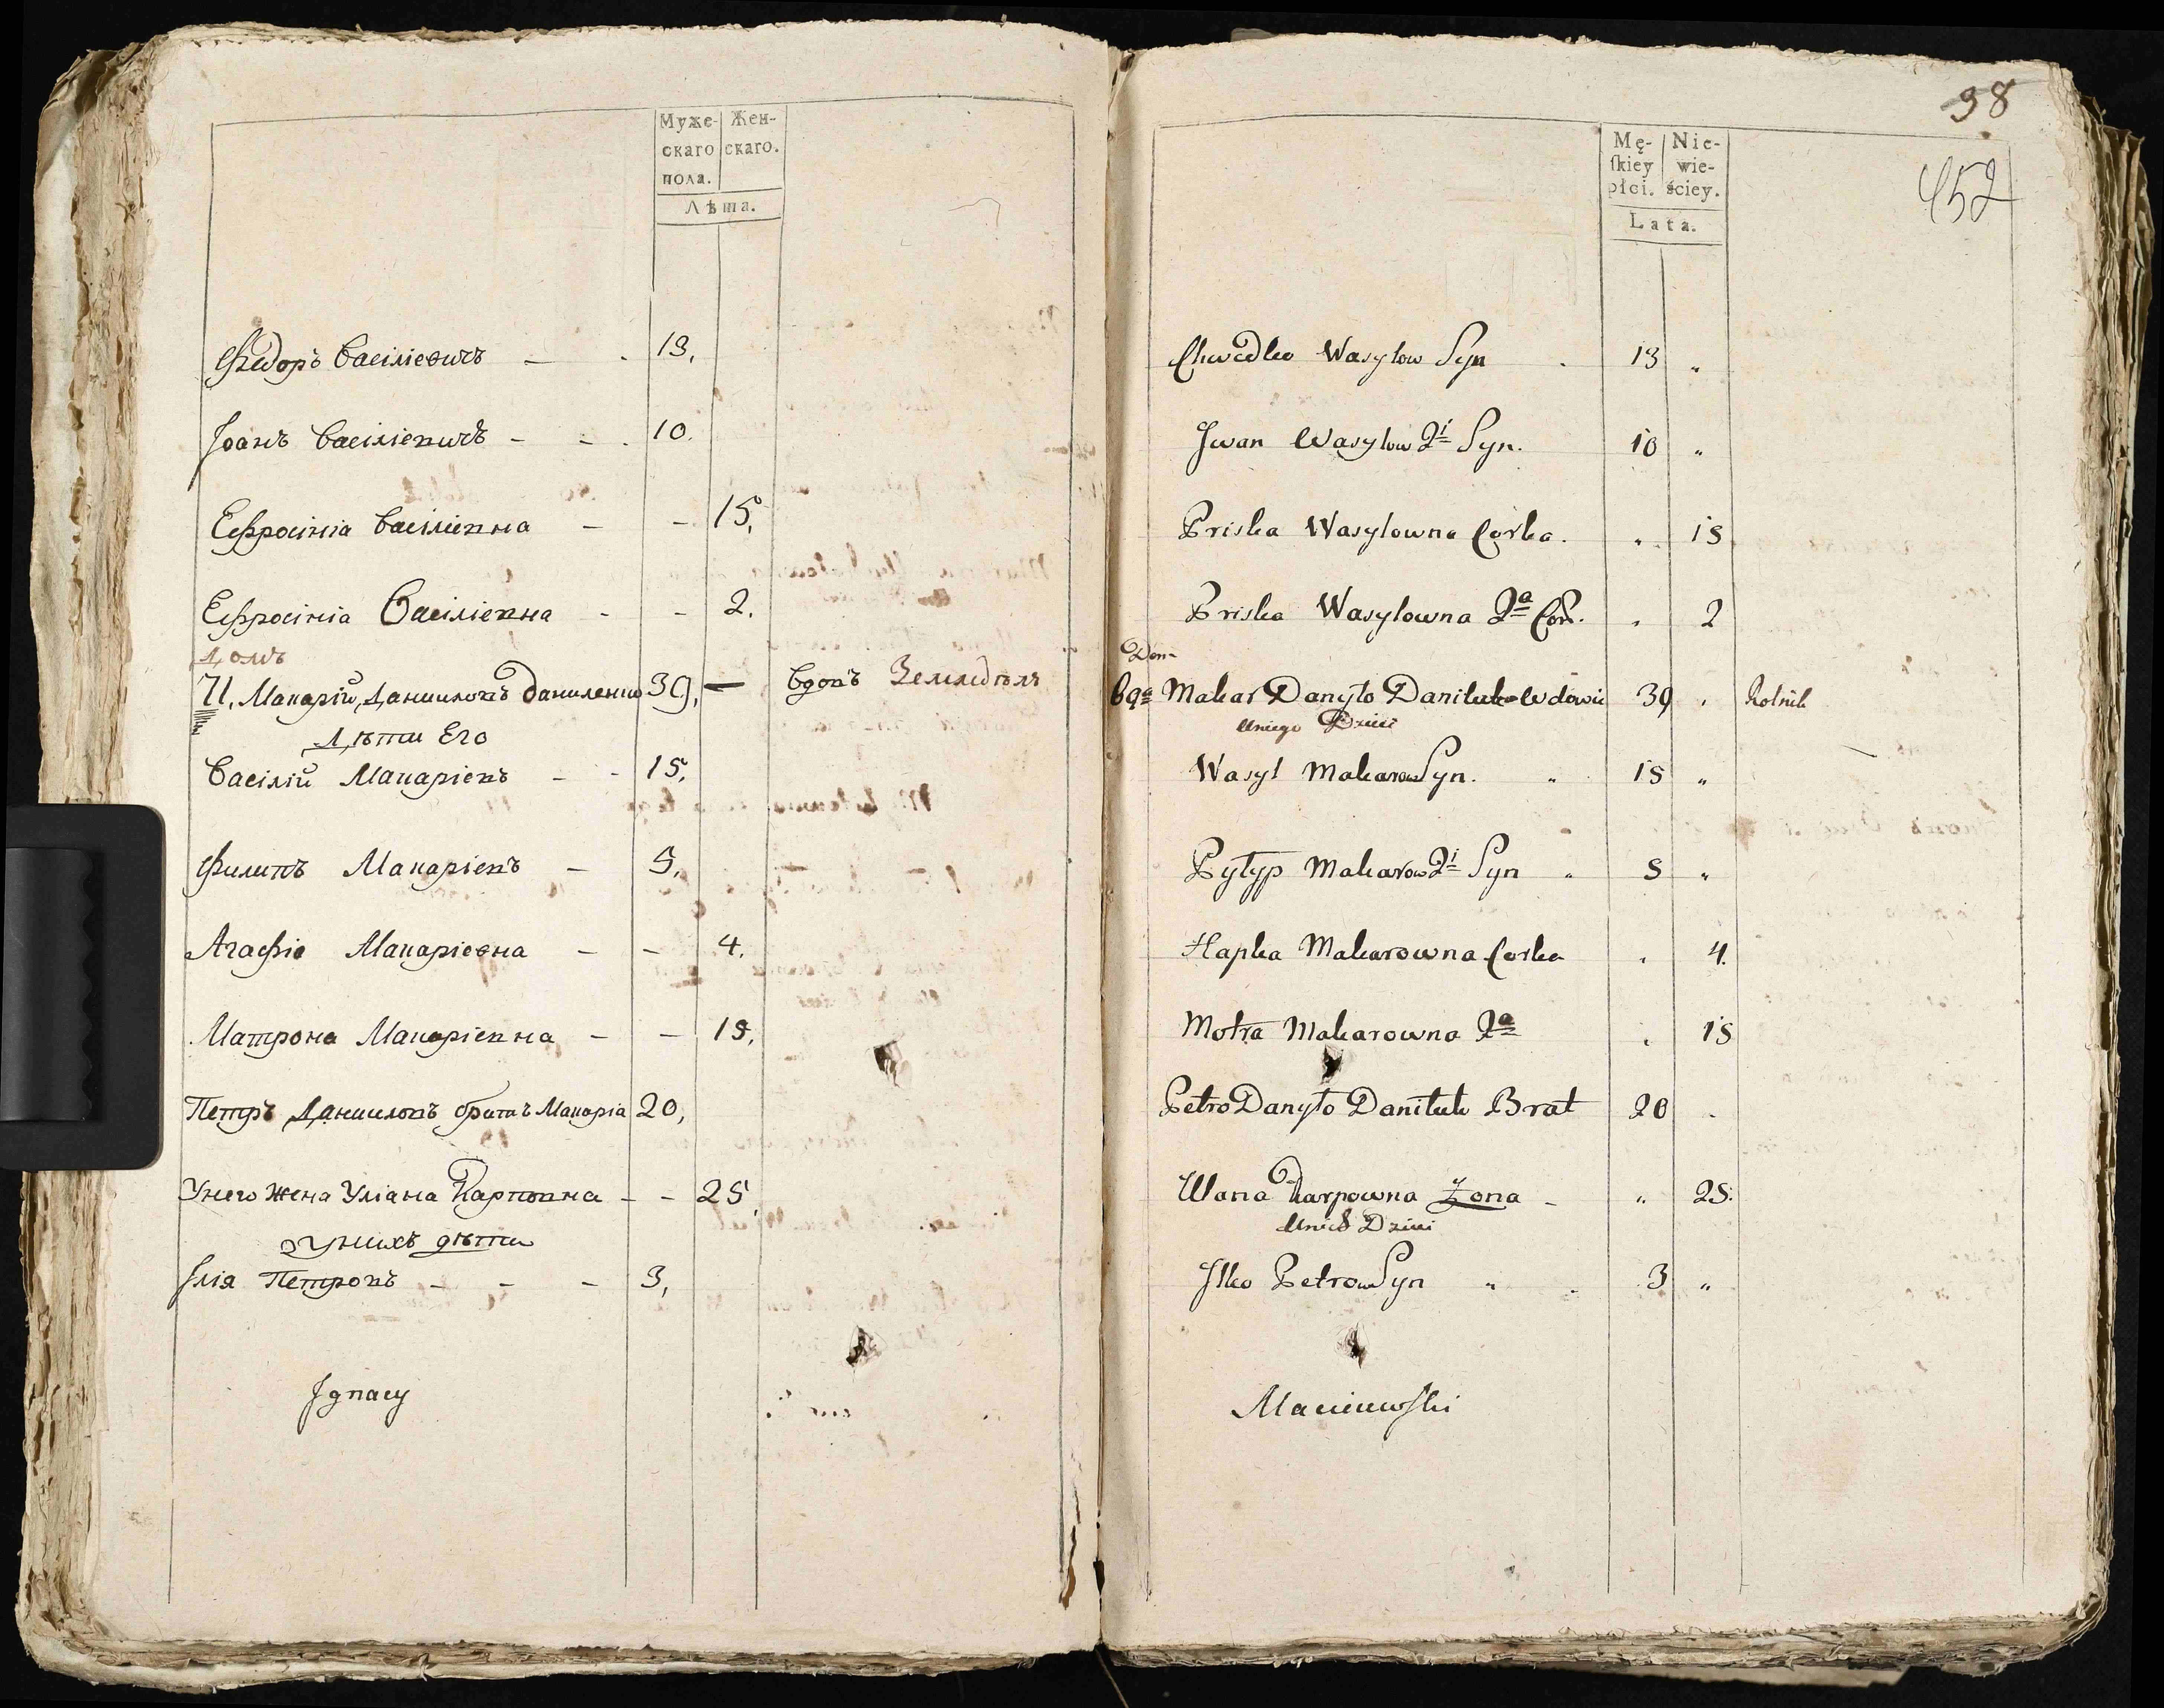 Муже- Жен-
скаго скаго.
пола.
Лѣта.
Ѳедоръ Василіевичъ - . 13,
Іоанъ Василіевичъ - - . 10.
Евфросинія Василіевна - - 15,
Евфросинія Василіевна - - 2.
Домъ
71, Макарій Даниловъ Даниленко 39, — Вдовъ Земледѣлъ
Дѣти Его
Василій Макаріевъ - - 15,
Филипъ Макаріевъ - 5,
Агафіа Макаріевна - - 4,
Матрона Макаріевна - - 15,
Петръ Даниловъ братъ Макаріа 20,
Унего жена Уліана Карповна - - 25,
Унихъ дѣти
Ілія Петровъ - - - 3,
Jgnacy
98
452
Mę- Nie-
ſkiey wie-
płci. ściey.
Lata.
Chwedko Wasylow Syn . 13 "
Jwan Wasylow 2i Syn. 10 "
Priska Wasylowna Corka. " 15
Priska Wasylowna 2a Cor. " 2
Dom
Makar Danyło Daniluk Wdowic 39 " Rolnik
Uniego Dzieci
Wasyl Makarow Syn. " 15 "
Pylyp Makarow 2i Syn " 5 "
Hapka Makarowna Corka " 4.
Motra Makarowna 2a " 15
Petro Danyło Daniluk Brat 20 "
Ulana Karpowna Zona - " 25.
Unich Dzieci
Jlko Petrow Syn " . 3 "
Maciiewſki